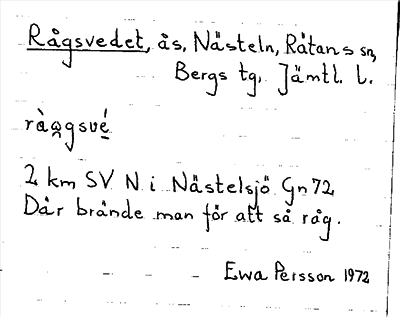 Rågsvedet, ås, Nästeln, Råtans sn,
Bergs tg, Jämtl. l.
ràggsvé
2 km SV N i Nästelsjö Gn 72
Där brände man för att så råg.
Ewa Persson 1972